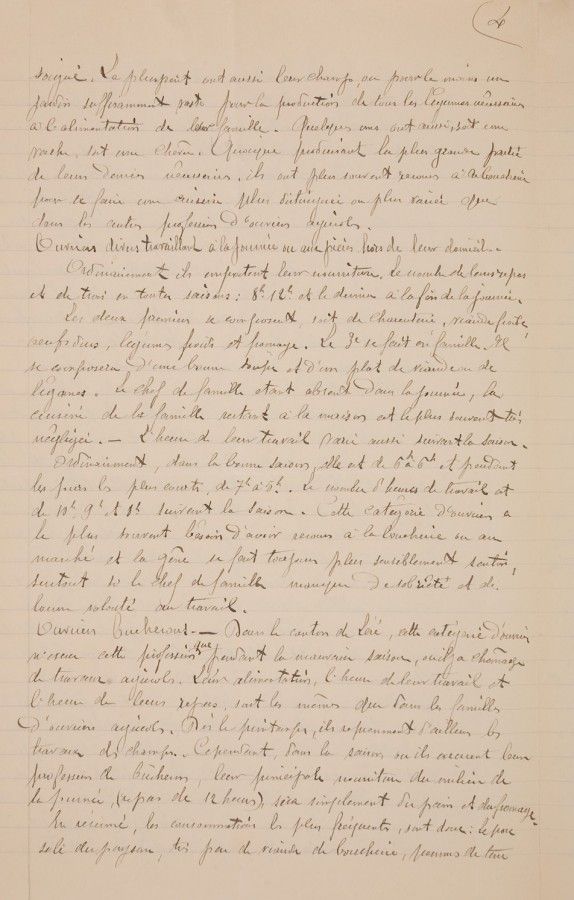 soigné. La plupart ont aussi leur champ, ou pour le moins un
jardin suffisamment vaste pour la production de tous les légumes nécessaires
à l'alimentation de leur famille. Quelques uns ont aussi, soit une
vache, soit une chèvre. Quoique produisant la plus grande partie
de leurs denrées nécessaires, ils ont plus souvent recours à la boucherie
pour se faire une cuisine plus distinguée ou plus variée que
dans les autres professions d'ouvriers agricoles.
Ouvriers divers travaillant à la journée ou aux pièces hors de leur domicile.
Ordinairement ils emportent leur nourriture. Le nombre de leurs repas
est de trois en toutes saisons : 8h 12h et le dernier à la fin de la journée.
Les deux premiers se composent soit de charcuterie, viande froide,
œufs durs, légumes froids et fromage. Le 3e se fait en famille. Il
se composera d'une bonne soupe et d'un plat de viande ou de
légumes. Le chef de famille étant absent dans la journée, la
cuisine de la famille restant à la maison est le plus souvent très
négligée. — L'heure de leur travail varie aussi suivant la saison.
Ordinairement, dans la bonne saison, elle est de 6h à 6h et pendant
les jours les plus courts, de 7h à 5h. Le nombre d'heures de travail est
de 10h 9h et 8h suivant la saison. Cette catégorie d'ouvriers a
le plus souvent besoin d'avoir recours à la boucherie ou au
marché et la gêne se fait toujours plus sensiblement sentir,
surtout si le chef de famille manque de sobriété et de
bonne volonté au travail.
Ouvriers Bûcherons. — Dans le canton de Léré, cette catégorie d'ouvriers
n'exerce cette profession que pendant la mauvaise saison, où il y a chômage
de travaux agricoles. Leur alimentation, l'heure de leur travail et
l'heure de leurs repas, sont les mêmes que dans les familles
d'ouvriers agricoles. Dès le printemps, ils reprennent d'ailleurs les
travaux des champs. Cependant, dans la saison où ils exercent leur
profession de bûcherons, leur principale nourriture du milieu de
la journée, (repas de 12 heures), sera simplement du pain et du fromage.
En résumé, les consommations les plus fréquentes, sont donc : le porc
salé du paysan, très peu de viande de boucherie, pommes de terre